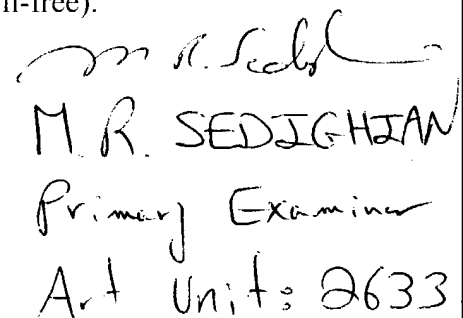 l-free).
M. R. Sedigh
M. R. SEDIGHIAN
Primary Examiner
Art Unit: 2633